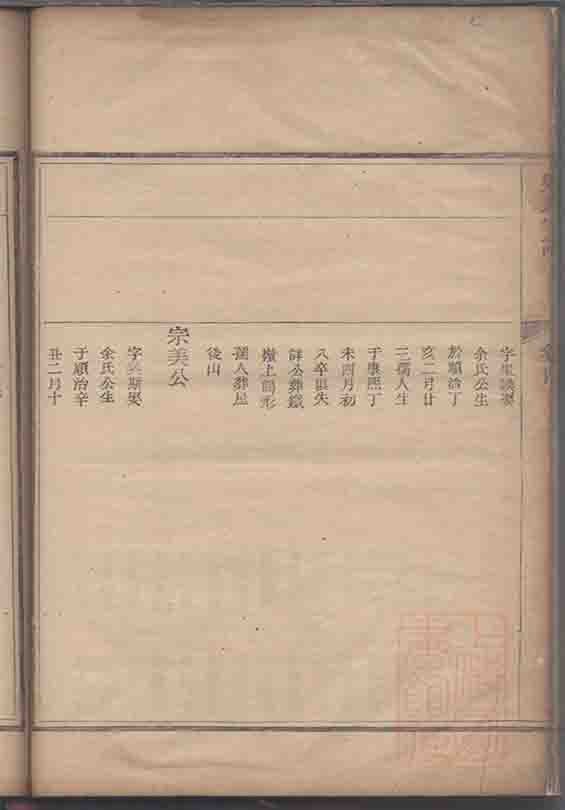 字 娶
余氏公生
於順治丁
亥二月廿
三孺人生
于康熙丁
未四月初
八卒俱失
詳公葬鐵
嶺上簡形
孺人葬屋
後山
宗美公
字 斯娶
余氏公生
于順治辛
丑二月十